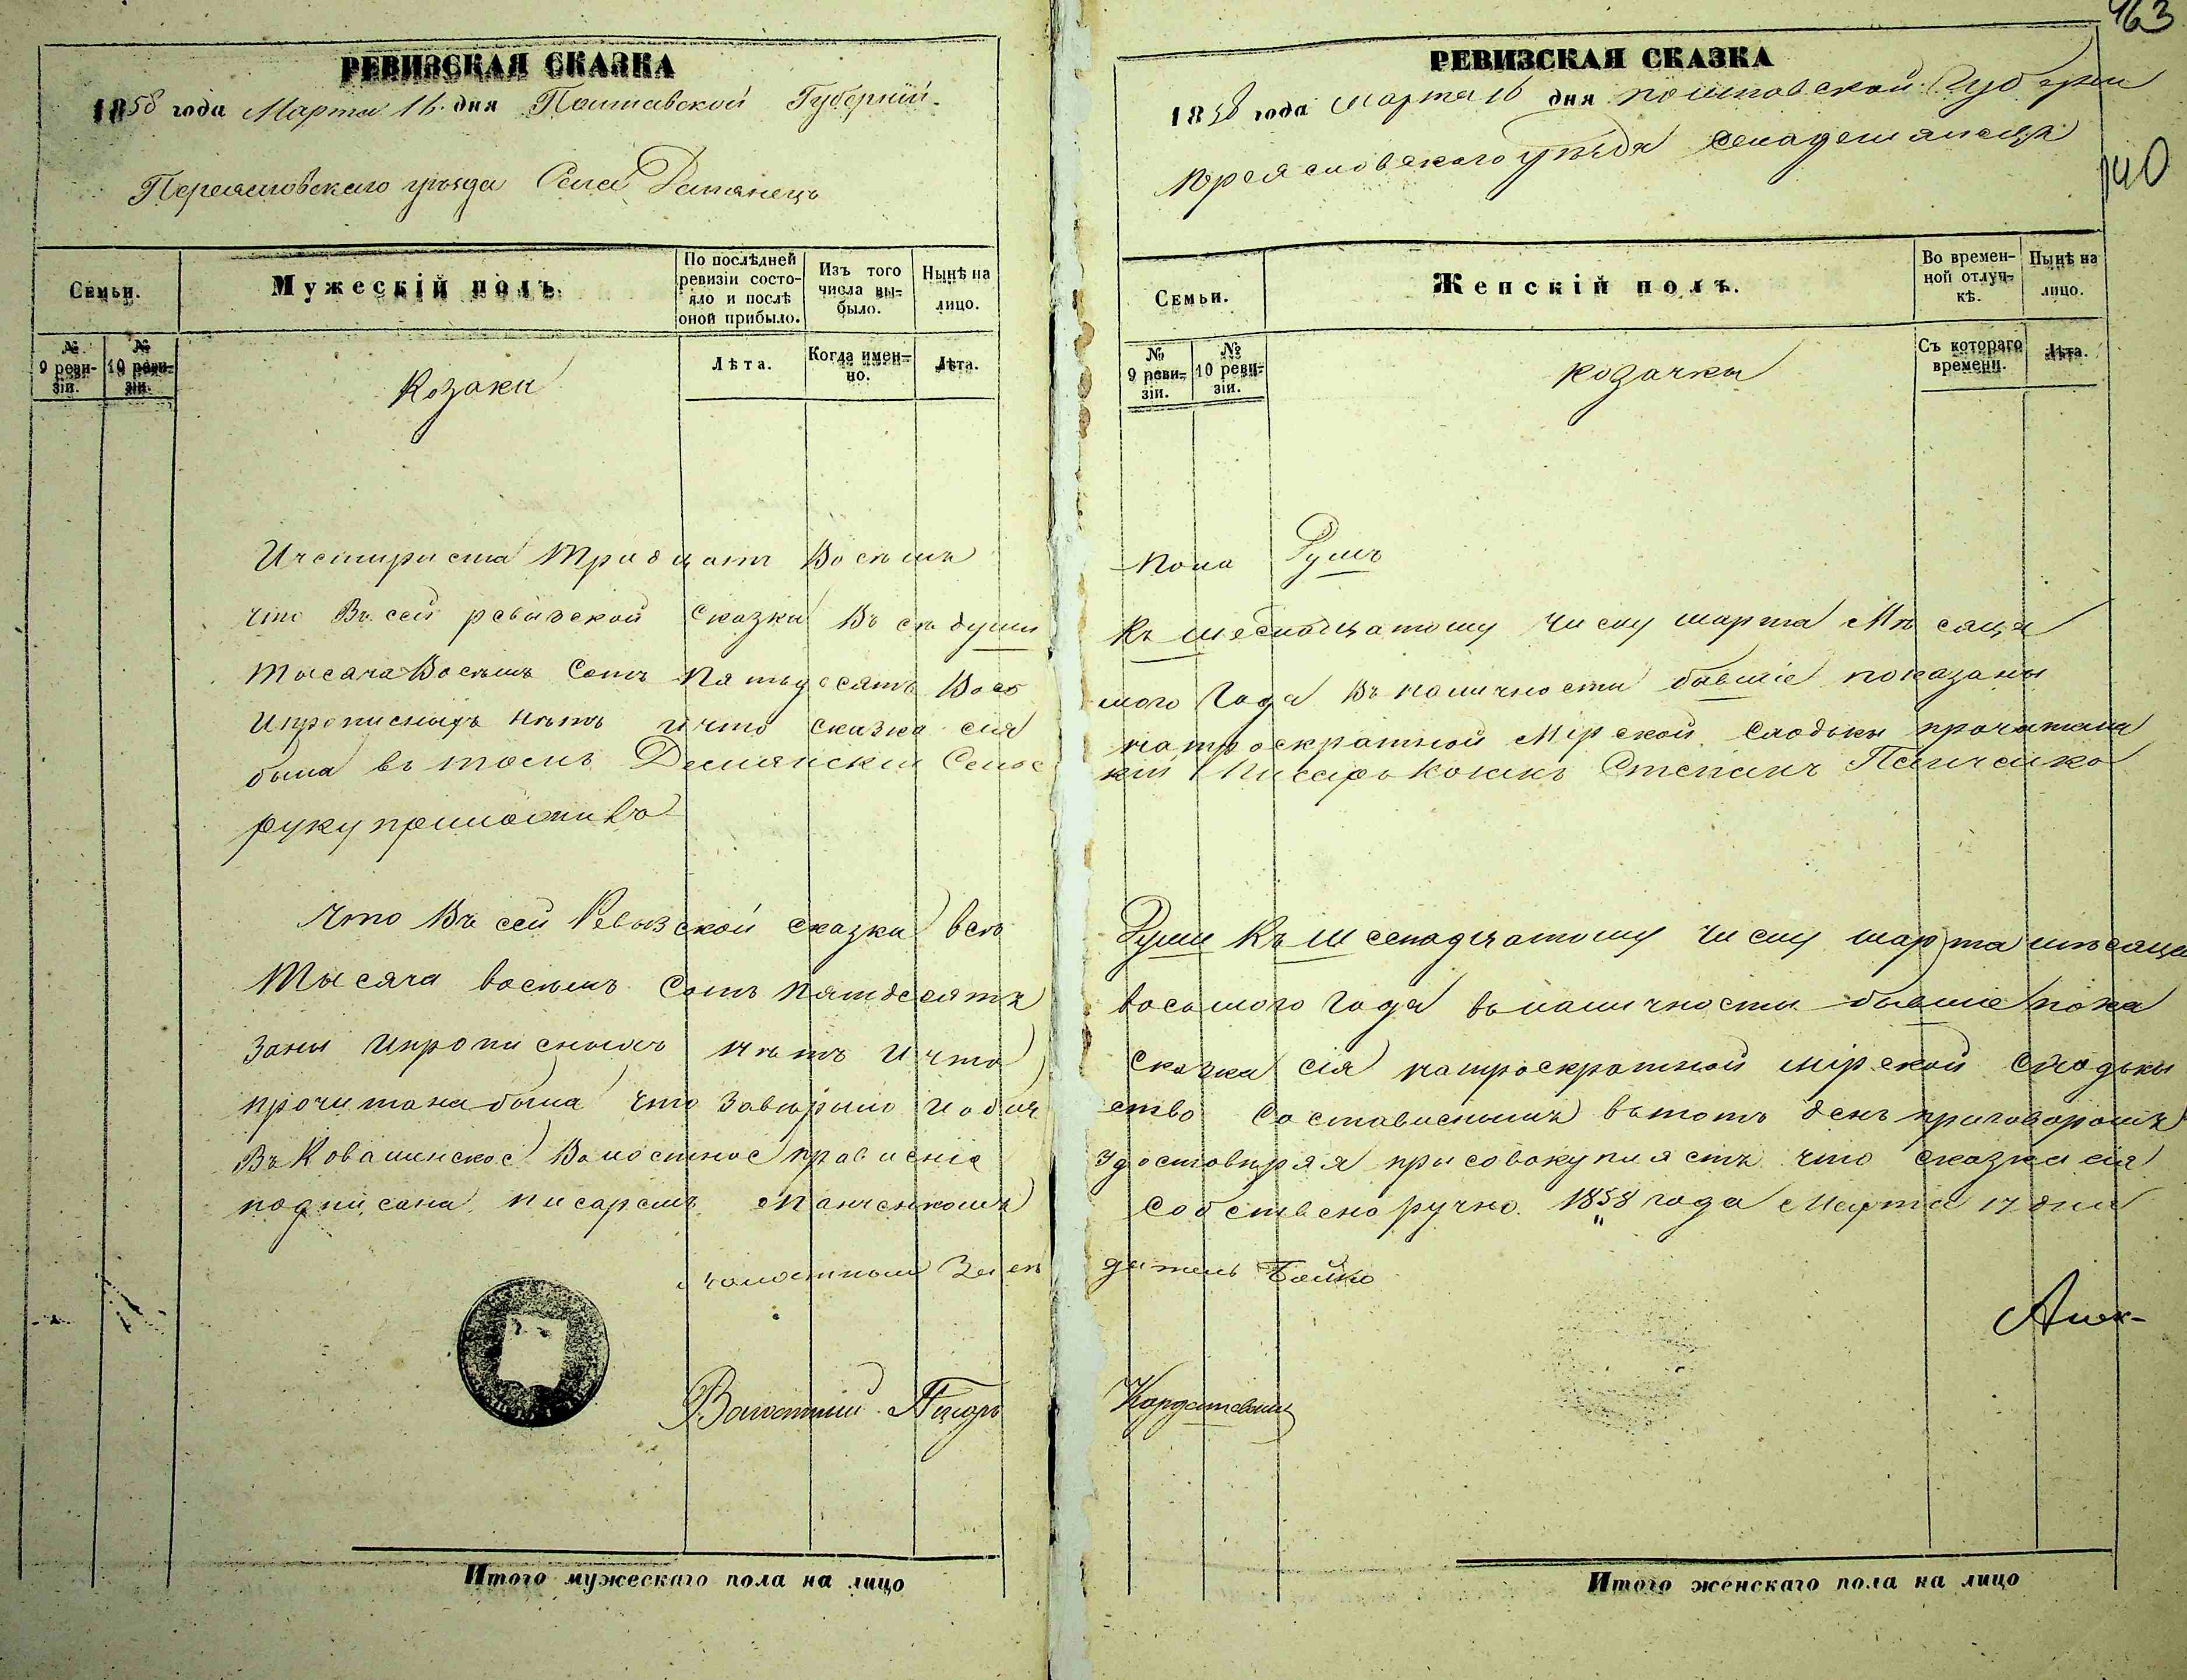 РЕВИЗСКАЯ СКАЗКА
1858 года Марта 16. дня Полтавской Губерніи.
Переясловского уѣзда Села Демянецъ
Семьи.
Мужескій полъ.
По послѣдней ревизіи состо-
яло и послѣ
оной прибыло.
Изъ того
числа вы-
было.
Нынѣ на
лицо.
№ 9 реви-
зіи.
№ 10 реви-
зіи.
Козаки
Лѣта.
Когда имен-
но.
Лѣта.
Ичетириста Тридцать Восемъ
что Въ сей ревызской Сказки Всѣ души
Тысяча Восемъ Сотъ Пятьдесятъ Восо
Ипрописныхъ нѣтъ и что Сказка сия
была въ томъ Демянскій Сельс
руку приложивъ
Что Въ сей Ревызской сказки всѣ
Тысяча восемъ Сотъ пятдесятъ
заны Ипрописныхъ нѣтъ И что
прочитана была что завѣрыло И общ
Въ Ковалинское Волостное правленіе
подписана писаремъ Панченкомъ
волостный Засѣ
Волостный Писарь
Итого мужескаго пола на лицо
163
РЕВИЗСКАЯ СКАЗКА
1858 года Марта 16 дня Полтавской Губерніи
140
Переясловского уѣзда Села демянецъ
Семьи.
Женскій полъ.
Во времен-
ной отлуч-
кѣ.
Нынѣ на
лицо.
№
9 реви-
зіи.
№
10 реви-
зіи.
козачки
Съ котораго
времени.
Лѣта.
Пола Душъ
Къ шеснадцатому числу марта Мѣсяца
мого Года Въ наличности бывшіе показаны
натроекратной Мірской сходкы прочитана
кій Писарь Козакъ Степанъ Панченко
Души Къ шеснадцатому числу марта мѣсяца
восьмого Года въ наличности бывшіе пока
Сказка сія натроекратной мірской Сходкы
ство Составленнымъ вътотъ день приговоромъ
удостовѣряя присовокупляетъ что сказка сія
Собственоручно. 1858 года Марта 17 дня
датель Бойко
Кордашевскій
Итого женскаго пола на лицо